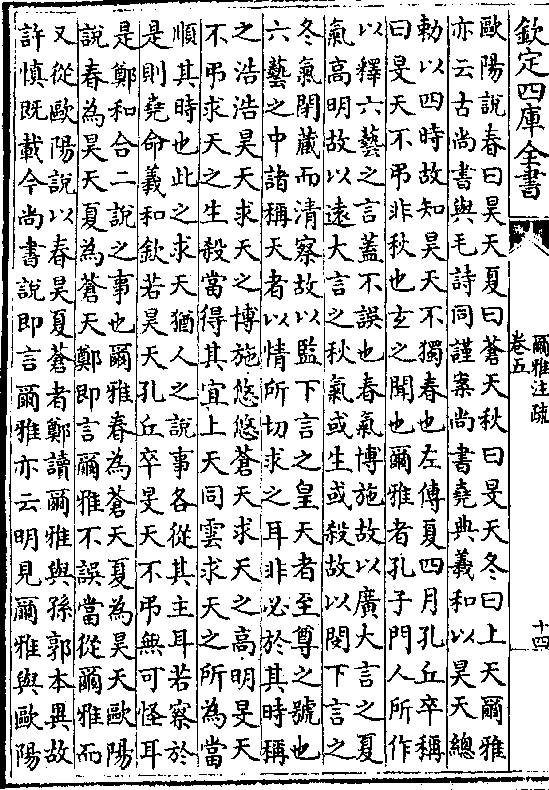 欽定四庫全書
爾雅注疏
卷五
十四
歐陽說春曰昊天夏曰蒼天秋曰旻天冬曰上天爾雅
亦云古尚書與毛詩同謹案尚書堯典羲和以昊天總
勅以四時故知昊天不獨春也左傳夏四月孔丘卒稱
曰旻天不弔非秋也玄之聞也爾雅者孔子門人所作
以釋六藝之言蓋不誤也春氣博施故以廣大言之夏
氣高明故以遠大言之秋氣或生或殺故以閔下言之
冬氣閉藏而清察故以監下言之皇天者至尊之號也
六藝之中諸稱天者以情所切求之耳非必於其時稱
之浩浩昊天求天之博施悠悠蒼天求天之高明旻天
不弔求天之生殺當得其宜上天同雲求天之所為當
順其時也此之求天猶人之說事各從其主耳若察於
是則堯命羲和欽若昊天孔丘卒旻天不弔無可怪耳
是鄭和合二說之事也爾雅春為蒼天夏為昊天歐陽
說春為昊天夏為蒼天鄭即言爾雅不誤當從爾雅而
又從歐陽說以春昊夏蒼者鄭讀爾雅與孫郭本異故
許慎既載今尚書說即言爾雅亦云明見爾雅與歐陽